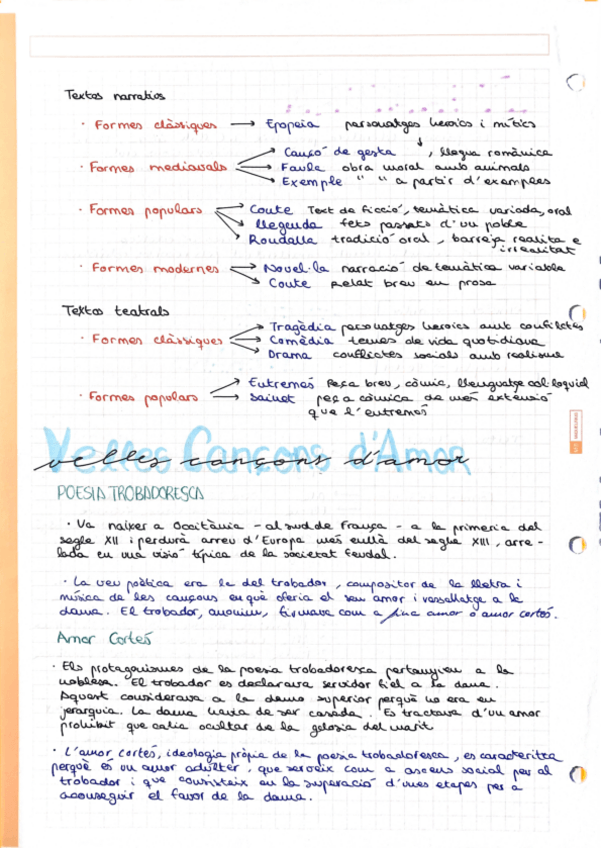 Textos narratius
· Formes clàssiques → Epopeia personatges heroics i mítics
· Formes medievals → Cançó de gesta , llegua romànica
→ Faula obra moral amb animals
→ Exemple " " a partir d'exemples
· Formes populars → Conte Text de ficció, temàtica variada, oral
→ llegenda fets passats d'un poble
→ Rondalla tradició oral, barreja realitat e
irrealitat
· Formes modernes → Novel·la narració de temàtica variable
→ Conte Relat breu en prosa
Textos teatrals
· Formes clàssiques → Tragèdia personatges heroics amb conflictes
→ Comèdia temes de vida quotidiana
→ Drama conflictes socials amb realisme
· Formes populars → Entremés Peça breu, còmic, llenguatge col·loquial
→ Sainet peça còmica de més extensió
que l'entremés
Velles Cançons d'Amor
velles cançons d'amor
POESIA TROBADORESCA
· Va naixer a Occitània - al sud de França - a la primeria del
segle XII i perdurà arreu d'Europa més enllà del segle XIII, arre-
lada en una visió típica de la societat feudal.
· La veu poètica era la del trobador, compositor de la lletra i
música de les cançons en què oferia el seu amor i vassallatge a la
dama. El trobador, anonim, firmava com a fina amor o amor cortés.
Amor Cortés
· Els protagonismes de la poesia trobadoresca pertanyien a la
noblesa. El trobador es declarava servidor fiel a la dama.
Aquest considerava a la dama superior perquè ho era en
jerarquia. La dama havia de ser casada. Es tractava d'un amor
prohibit que calia ocultar de la gelosia del marit
· L'amor cortés, ideologia pròpia de la poesia trobadoresca, es caracteritza
perquè és un amor adúlter, que serveix com a ascens social per al
trobador i que consisteix en la superació d'unes etapes per a
aconseguir el favor de la dama.